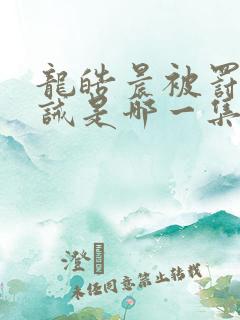 龍皓晨被罰
誡是哪一集
澄
未任同意禁止转载